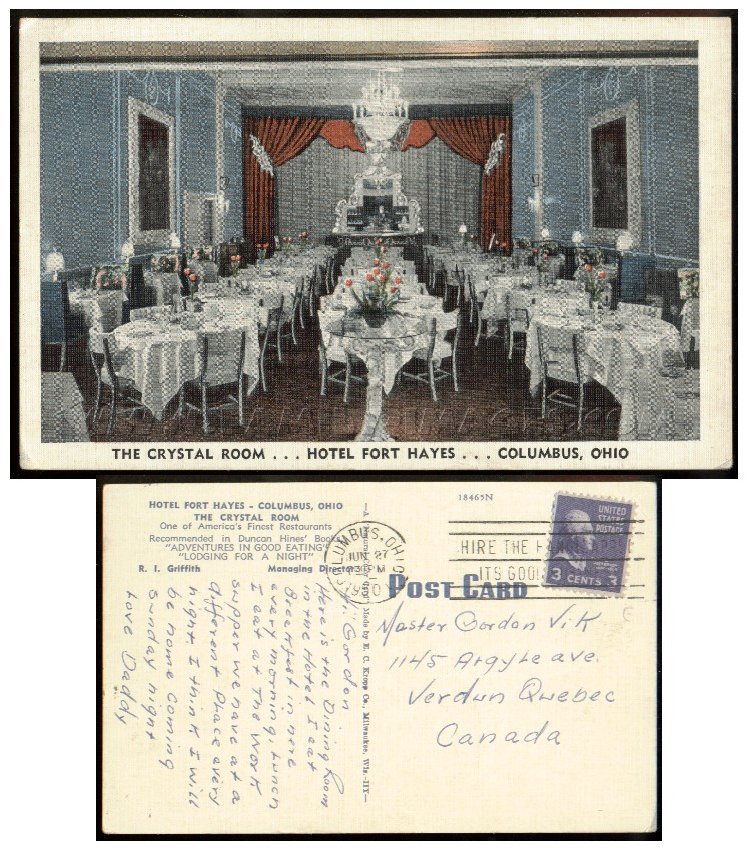 THE CRYSTAL ROOM ... HOTEL FORT HAYES ... COLUMBUS, OHIO
HOTEL FORT HAYES - COLUMBUS, OHIO
THE CRYSTAL ROOM
One of America's Finest Restaurants
Recommended in Duncan Hines' Books
"ADVENTURES IN GOOD EATING"
"LODGING FOR A NIGHT"
R. I. Griffith Managing Director
Hi Gordon
Here is the Dining Room
in the Hotel I eat
Breakfest in here
every morning, Lunch
I eat at the Work
supper we have at a
different Place every
night I think I will
be home coming
Sunday night
Love Daddy
Made by E. C. Kropp Co., Milwaukee, Wis.
18465N
COLUMBUS, OHIO
JUN 27
PM
1950
HIRE THE
ITS GOOD
UNITED
STATES
POSTAGE
3 CENTS 3
POST CARD
Master Gordon Vik
1145 Argyle ave.
Verdun Quebec
Canada